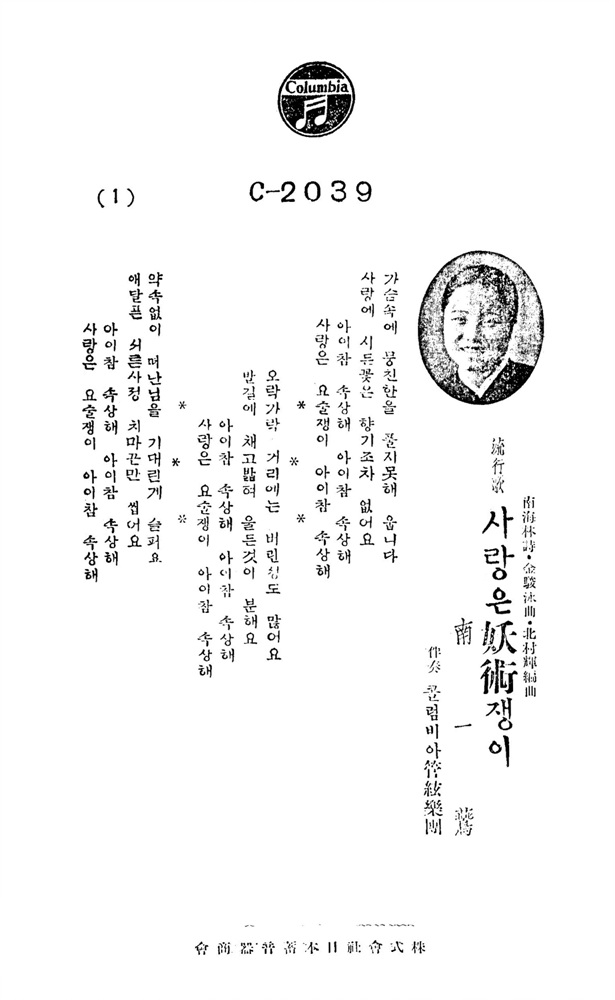 Columbia
C-2039
(1)
流行歌
南海林詩·金駿泳曲·北村輝編曲
사랑은妖術쟁이
南一鶯
伴奏 콜럼비아管絃樂團
가슴속에 뭉친한을 풀지못해 웁니다
사랑에 시든꽃은 향기조차 없어요
아이참 속상해 아이참 속상해
사랑은 요술쟁이 아이참 속상해
* * *
오락가락 거리에는 버린청도 많어요
발길에 채고밟혀 울든것이 분해요
아이참 속상해 아이참 속상해
사랑은 요술쟁이 아이참 속상해
* * *
약속없이 떠난님을 기대린게 슬퍼요
애달픈 쇠른사정 치마끈만 씹어요
아이참 속상해 아이참 속상해
사랑은 요술쟁이 아이참 속상해
會商器音蓄本日社會式株